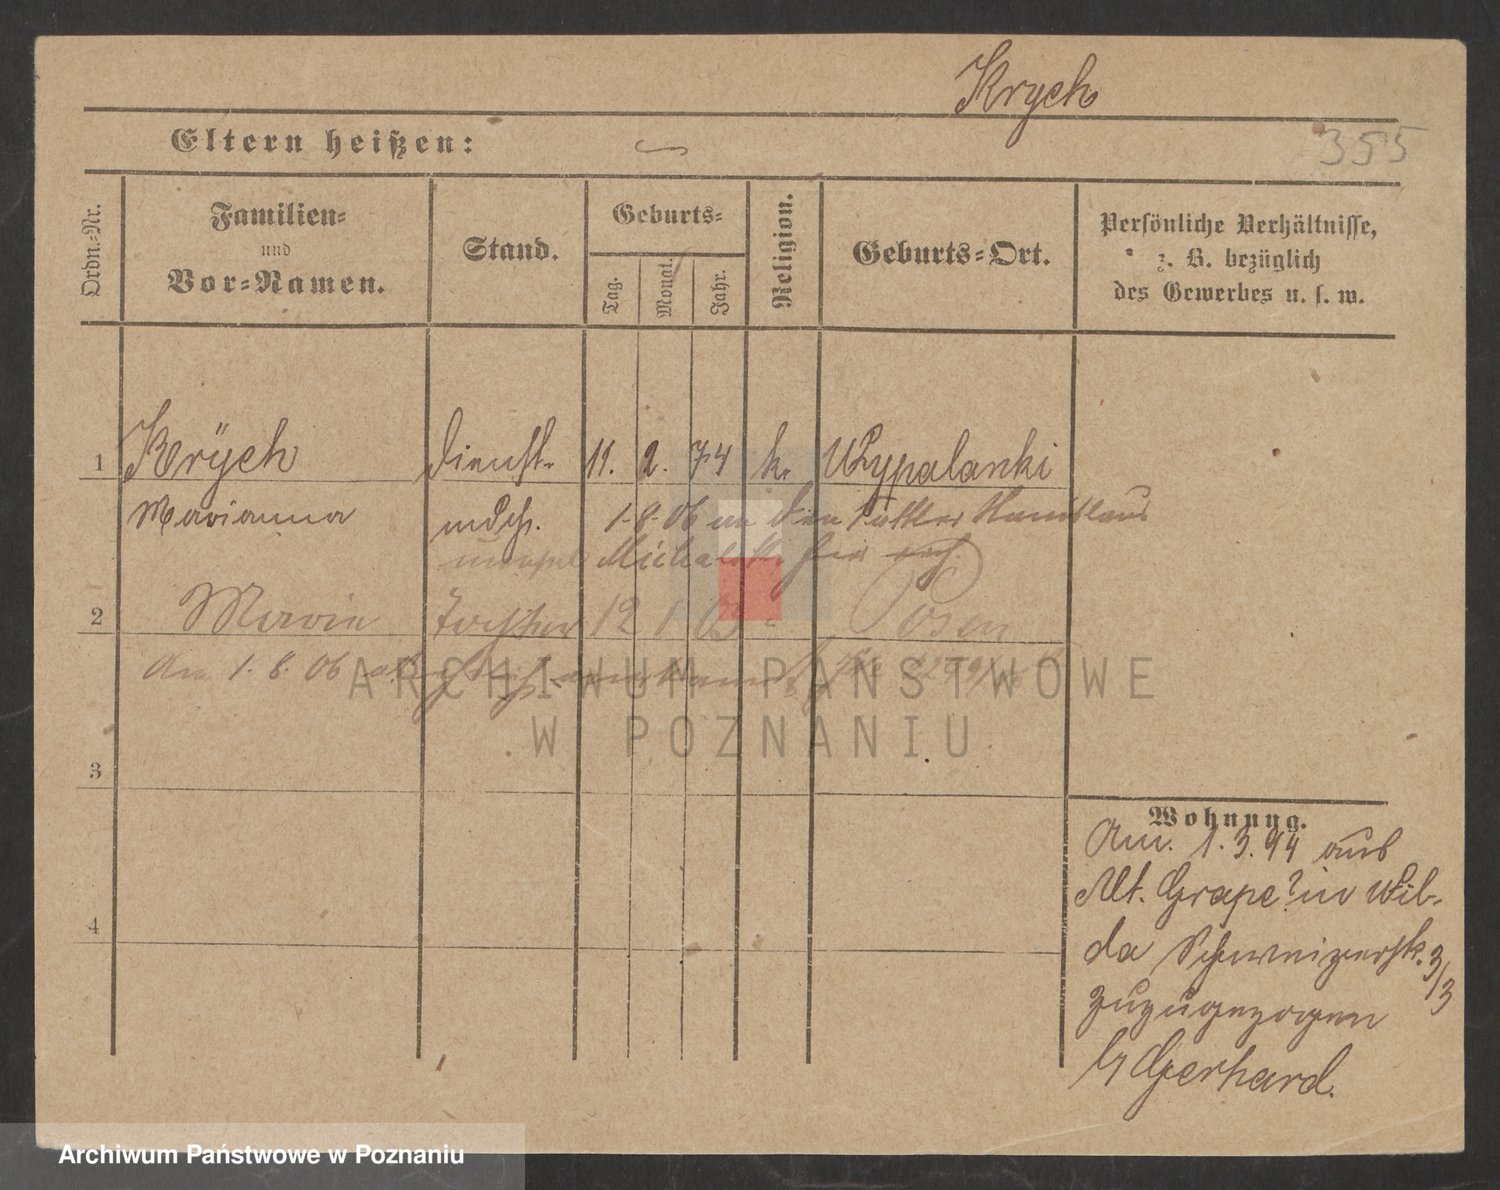 Krych
Eltern heißen:
355
Ordn.=Nr.
Familien=
und
Vor=Namen.
Stand.
Geburts=
Tag.
Monat.
Jahr.
Religion.
Geburts=Ort.
Persönliche Verhältnisse,
z. B. bezüglich
des Gewerbes u. s. w.
1 Krÿch Dienst- 11. 2. 74 k.
Marianna mdch. 1.8.06 an den
Michalski
2 Marie Tochter 12 1 03 Posen
Am 1.8.06
3
4
Wohnung.
Am. 1.3.94 aus
Alt. Grape? in Wil-
da Schweizerstr. 3/3
zuzugezogen
Gerhard.
ARCHIWUM PAŃSTWOWE
W POZNANIU
Archiwum Państwowe w Poznaniu